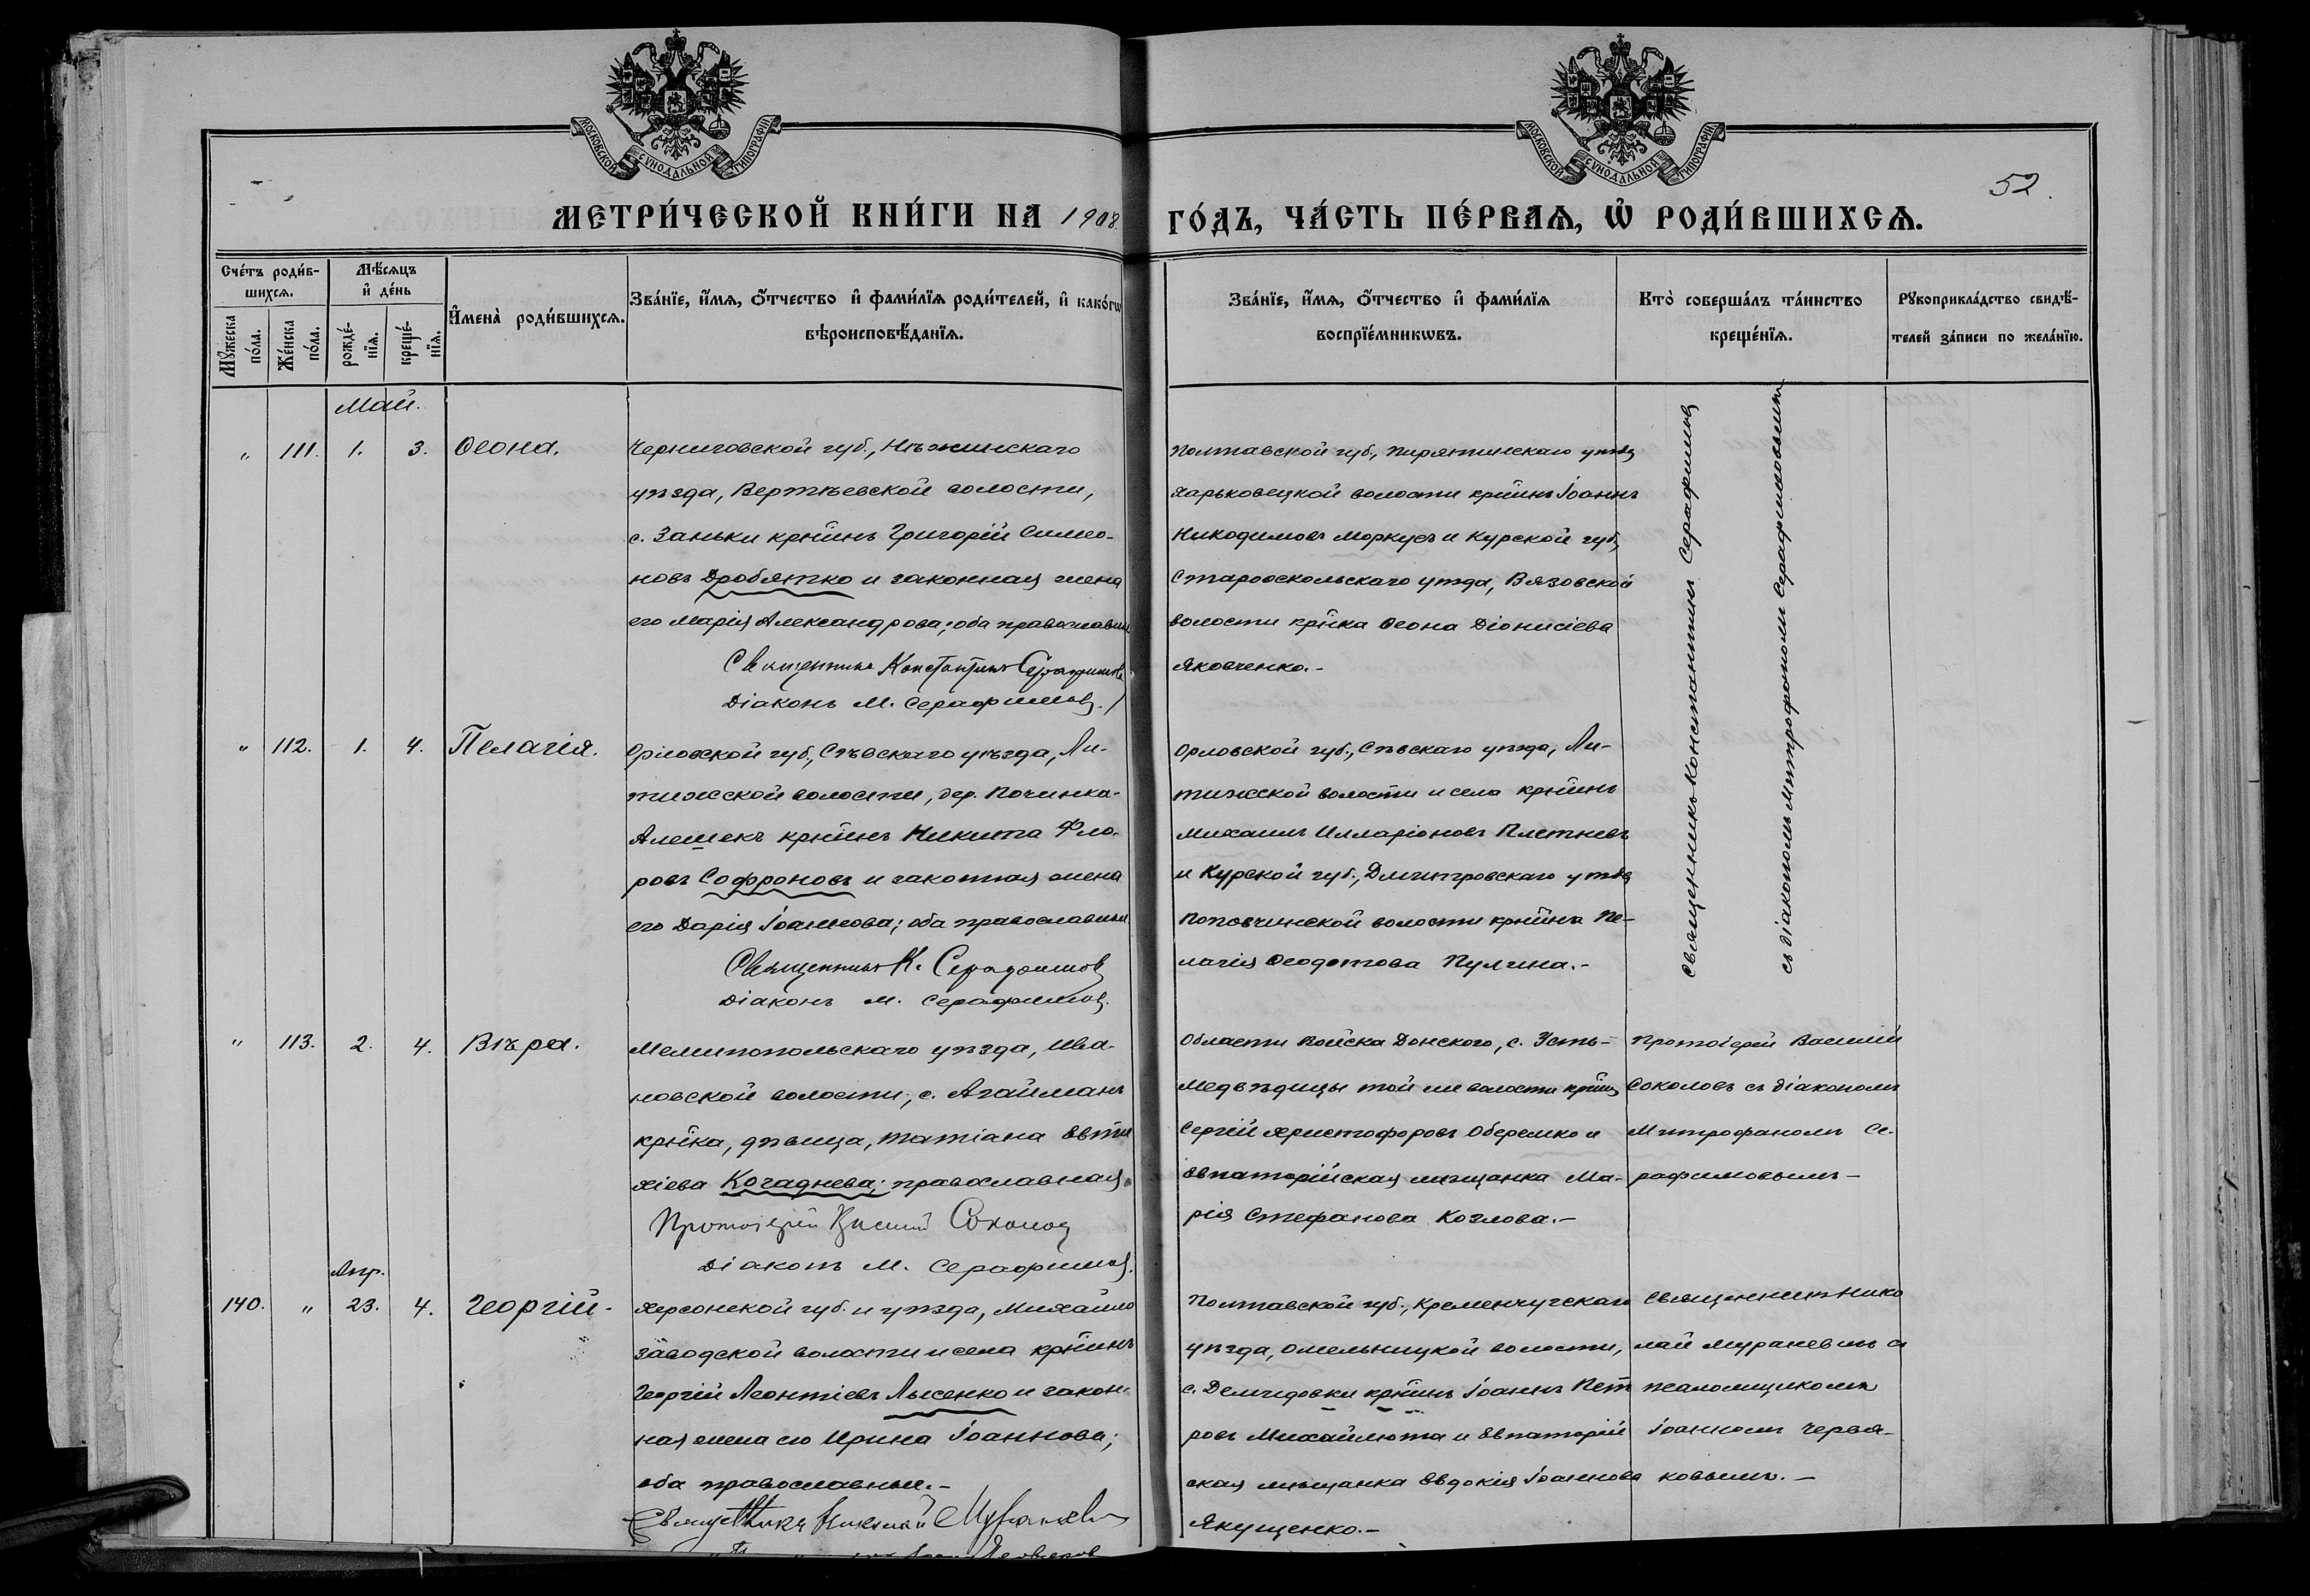 МОСКОВСКОЙ СѴНОДАЛЬНОЙ ТИПОГРАФІИ
МОСКОВСКОЙ СѴНОДАЛЬНОЙ ТИПОГРАФІИ
52.
МЕТРИ́ЧЕСКОЙ КНИ́ГИ НА 1908. ГО́ДЪ, ЧА́СТЬ ПЕ́РВАѦ, Ѡ҆ РОДИ́ВШИХСѦ.
Сче́тъ роди́в-
шихсѧ.
Мꙋ́жеска по́ла.
Же́нска по́ла.
Мѣ́сѧцъ
и҆ де́нь
рожде́-
нїѧ.
креще́-
нїѧ.
И҆мена̀ роди́вшихсѧ.
Зва́нїе, и҆́мѧ, ѻ҆́тчество и҆ фами́лїѧ роди́телей, и҆ како́гѡ
вѣроисповѣ́данїѧ.
Зва́нїе, и҆́мѧ, ѻ҆́тчество и҆ фами́лїѧ
воспрїе́мникѡвъ.
Кто̀ соверша́лъ та́инство
креще́нїѧ.
Рꙋкоприкла́дство свидѣ́-
телей за́писи по жела́нїю.
Май.
„ 111. 1. 3. Ѳеона.
Черниговской губ., Нѣжинскаго
уѣзда, Вертѣевской волости,
с. Заньки кр̄нинъ Григорій Симео-
новъ Дробятко и законная жена
его Марія Александрова; оба православные
Священникъ Константинъ Серафимовъ
Діаконъ М. Серафимовъ.
Полтавской губ., Пирятинскаго уѣзд
Харьковецкой волости кр̄нинъ Іоаннъ
Никодимовъ Моркусъ и Курской губ.,
Старооскольскаго уѣзда, Вязовской
волости кр̄нка Ѳеона Діонисіева
Яковченко.-
Священникъ Константинъ Серафимовъ
съ діакономъ Митрофаномъ Серафимовымъ
„ 112. 1. 4. Пелагія.
Орловской губ., Сѣвскаго уѣзда, Ли-
тижской волости, дер. Починка-
Алешекъ кр̄нинъ Никита Фло-
ровъ Софроновъ и законная жена
его Дарія Іоаннова; оба православные
Священникъ К. Серафимовъ
Діаконъ М. Серафимовъ.
Орловской губ., Сѣвскаго уѣзда, Ли-
тижской волости и села кр̄нинъ
Михаилъ Илларіоновъ Плетневъ
и Курской губ., Дмитровскаго уѣзд
Поповчинской волости кр̄нина Пе-
лагія Ѳеодотова Пулгина.-
„ 113. 2. 4. Вѣра.
Мелитопольскаго уѣзда, Ива-
новской волости, с. Агайманъ
кр̄нка, дѣвица, Татіана Евти
хіева Когаднева; православная.
Протоіерей Василій Соколовъ
Діаконъ М. Серафимовъ.
Области Войска Донского, с. Усть-
Медвѣдицы той же волости кр̄нин
Сергій Христофоровъ Оберемко и
Евпаторійская мѣщанка Ма-
рія Стефанова Козлова.-
Протоіерей Василій
Соколовъ съ діакономъ
Митрофаномъ Се-
рафимовымъ-
Апр.
140. „ 23. 4. Георгій.
Херсонской губ. и уѣзда, Михайло
заводской волости и села кр̄нинъ
Георгій Леонтіевъ Лысенко и закон-
ная жена его Ирина Іоаннова;
оба православные.-
Священникъ Николай Мураневичъ
Полтавской губ., Кременчугскаго
уѣзда, Омельницкой волости,
с. Демидовки кр̄нинъ Іоаннъ Пет
ровъ Михайлюта и Евпаторій
ская мѣщанка Евдокія Іоаннова
Якущенко.-
Священникъ Нико
лай Мураневичъ съ
псаломщикомъ
Іоанномъ Червя-
ковымъ.-